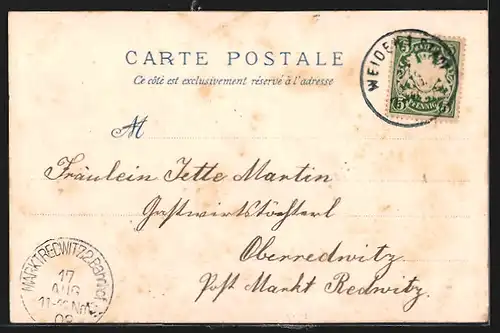 CARTE POSTALE
Ce côté est exclusivement réservé à l'adresse
WEIDEN
5 5
PFENNIG
M
Fräulein Jette Martin
Gastwirtstöchterl
Oberredwitz
Post Markt Redwitz
MARKTREDWITZ 2. Bahnhof
17
AUG